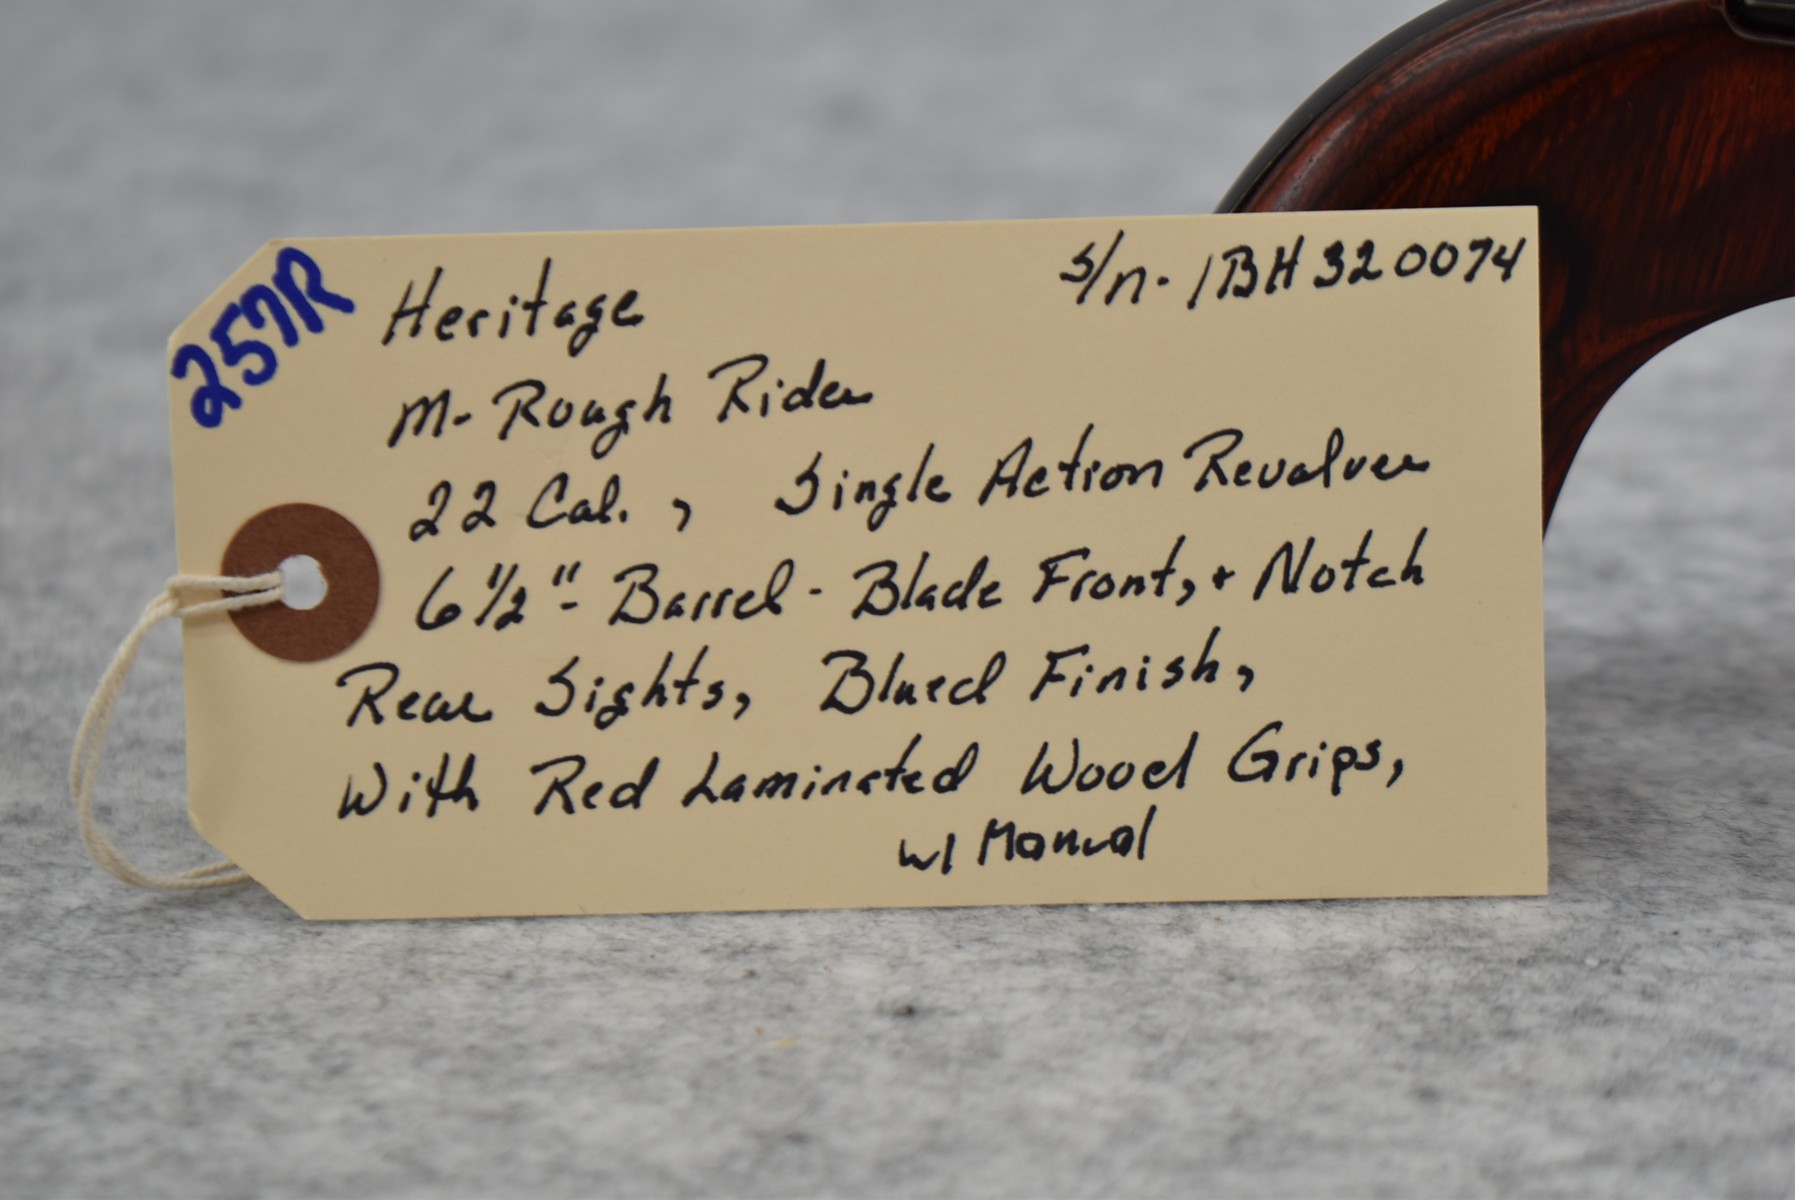 257R
Heritage s/n. 1BH320074
M- Rough Rider
22 Cal. , Single Action Revolver
6 1/2"- Barrel - Blade Front, + Notch
Rear Sights, Blued Finish,
With Red Laminated Wood Grips,
w/ Manual